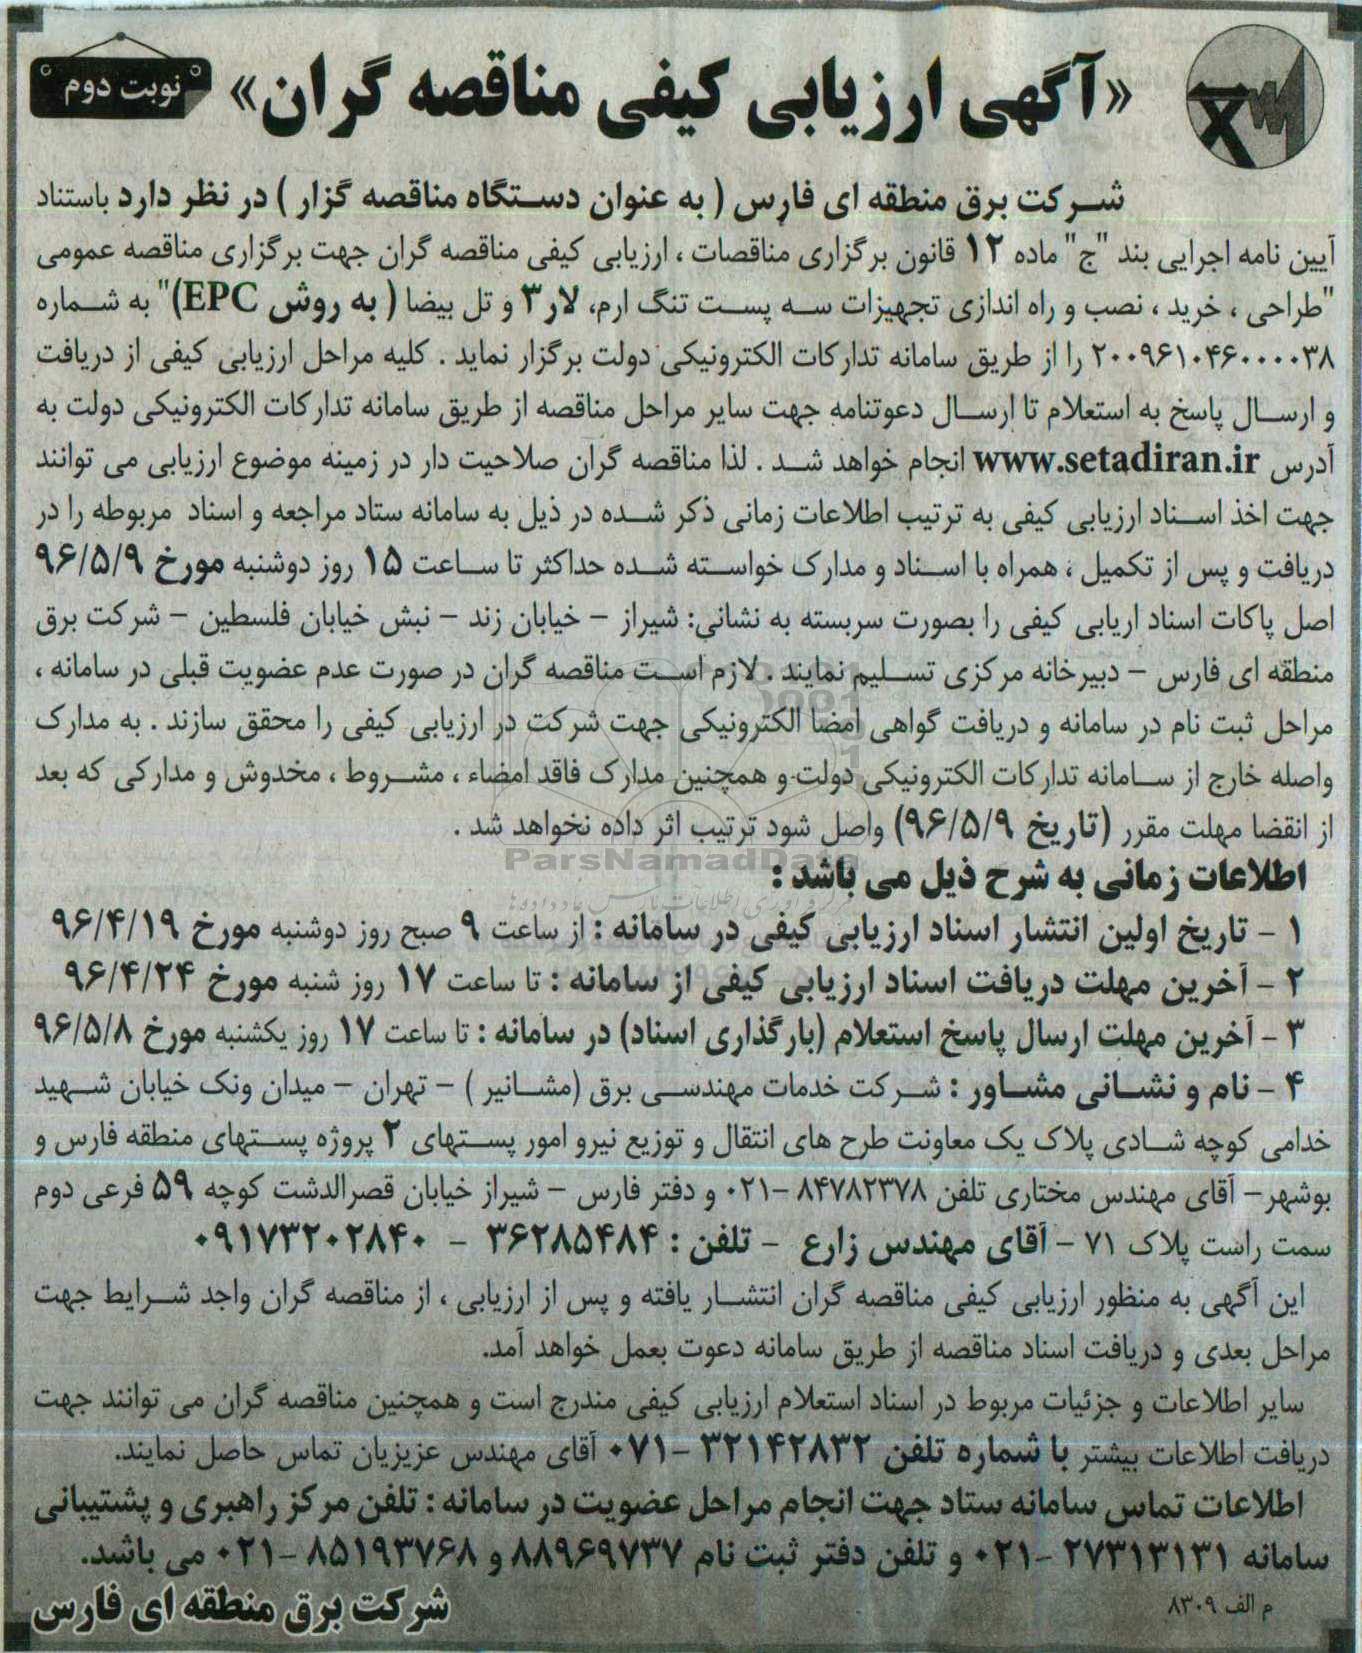 «آگهی ارزیابی کیفی مناقصه گران»
نوبت دوم
شرکت برق منطقه ای فارس ( به عنوان دستگاه مناقصه گزار ) در نظر دارد باستناد
آیین نامه اجرایی بند "ج" ماده ۱۲ قانون برگزاری مناقصات ، ارزیابی کیفی مناقصه گران جهت برگزاری مناقصه عمومی
"طراحی ، خرید ، نصب و راه اندازی تجهیزات سه پست تنگ ارم، لار۳ و تل بیضا ( به روش EPC)" به شماره
۲۰۰۹۶۱۰۴۶۰۰۰۰۳۸ را از طریق سامانه تدارکات الکترونیکی دولت برگزار نماید . کلیه مراحل ارزیابی کیفی از دریافت
و ارسال پاسخ به استعلام تا ارسال دعوتنامه جهت سایر مراحل مناقصه از طریق سامانه تدارکات الکترونیکی دولت به
آدرس www.setadiran.ir انجام خواهد شد . لذا مناقصه گران صلاحیت دار در زمینه موضوع ارزیابی می توانند
جهت اخذ اسناد ارزیابی کیفی به ترتیب اطلاعات زمانی ذکر شده در ذیل به سامانه ستاد مراجعه و اسناد مربوطه را در
دریافت و پس از تکمیل ، همراه با اسناد و مدارک خواسته شده حداکثر تا ساعت ۱۵ روز دوشنبه مورخ ۹۶/۵/۹
اصل پاکات اسناد اریابی کیفی را بصورت سربسته به نشانی: شیراز – خیابان زند – نبش خیابان فلسطین – شرکت برق
منطقه ای فارس – دبیرخانه مرکزی تسلیم نمایند . لازم است مناقصه گران در صورت عدم عضویت قبلی در سامانه ،
مراحل ثبت نام در سامانه و دریافت گواهی امضا الکترونیکی جهت شرکت در ارزیابی کیفی را محقق سازند . به مدارک
واصله خارج از سامانه تدارکات الکترونیکی دولت و همچنین مدارک فاقد امضاء ، مشروط ، مخدوش و مدارکی که بعد
از انقضا مهلت مقرر (تاریخ ۹۶/۵/۹) واصل شود ترتیب اثر داده نخواهد شد .
ParsNamadData
اطلاعات زمانی به شرح ذیل می باشد :
۱ - تاریخ اولین انتشار اسناد ارزیابی کیفی در سامانه : از ساعت ۹ صبح روز دوشنبه مورخ ۹۶/۴/۱۹
۲ - آخرین مهلت دریافت اسناد ارزیابی کیفی از سامانه : تا ساعت ۱۷ روز شنبه مورخ ۹۶/۴/۲۴
۳ - آخرین مهلت ارسال پاسخ استعلام (بارگذاری اسناد) در سامانه : تا ساعت ۱۷ روز یکشنبه مورخ ۹۶/۵/۸
۴ - نام و نشانی مشاور : شرکت خدمات مهندسی برق (مشانیر ) – تهران – میدان ونک خیابان شهید
خدامی کوچه شادی پلاک یک معاونت طرح های انتقال و توزیع نیرو امور پستهای ۲ پروژه پستهای منطقه فارس و
بوشهر– آقای مهندس مختاری تلفن ۸۴۷۸۲۳۷۸ –۰۲۱ و دفتر فارس – شیراز خیابان قصرالدشت کوچه ۵۹ فرعی دوم
سمت راست پلاک ۷۱ – آقای مهندس زارع – تلفن : ۳۶۲۸۵۴۸۴ – ۰۹۱۷۳۲۰۲۸۴۰
این آگهی به منظور ارزیابی کیفی مناقصه گران انتشار یافته و پس از ارزیابی ، از مناقصه گران واجد شرایط جهت
مراحل بعدی و دریافت اسناد مناقصه از طریق سامانه دعوت بعمل خواهد آمد.
سایر اطلاعات و جزئیات مربوط در اسناد استعلام ارزیابی کیفی مندرج است و همچنین مناقصه گران می توانند جهت
دریافت اطلاعات بیشتر با شماره تلفن ۳۲۱۴۲۸۳۲ –۰۷۱ آقای مهندس عزیزیان تماس حاصل نمایند.
اطلاعات تماس سامانه ستاد جهت انجام مراحل عضویت در سامانه : تلفن مرکز راهبری و پشتیبانی
سامانه ۲۷۳۱۳۱۳۱ –۰۲۱ و تلفن دفتر ثبت نام ۸۸۹۶۹۷۳۷ و ۸۵۱۹۳۷۶۸ –۰۲۱ می باشد.
م الف ۸۳۰۹
شرکت برق منطقه ای فارس